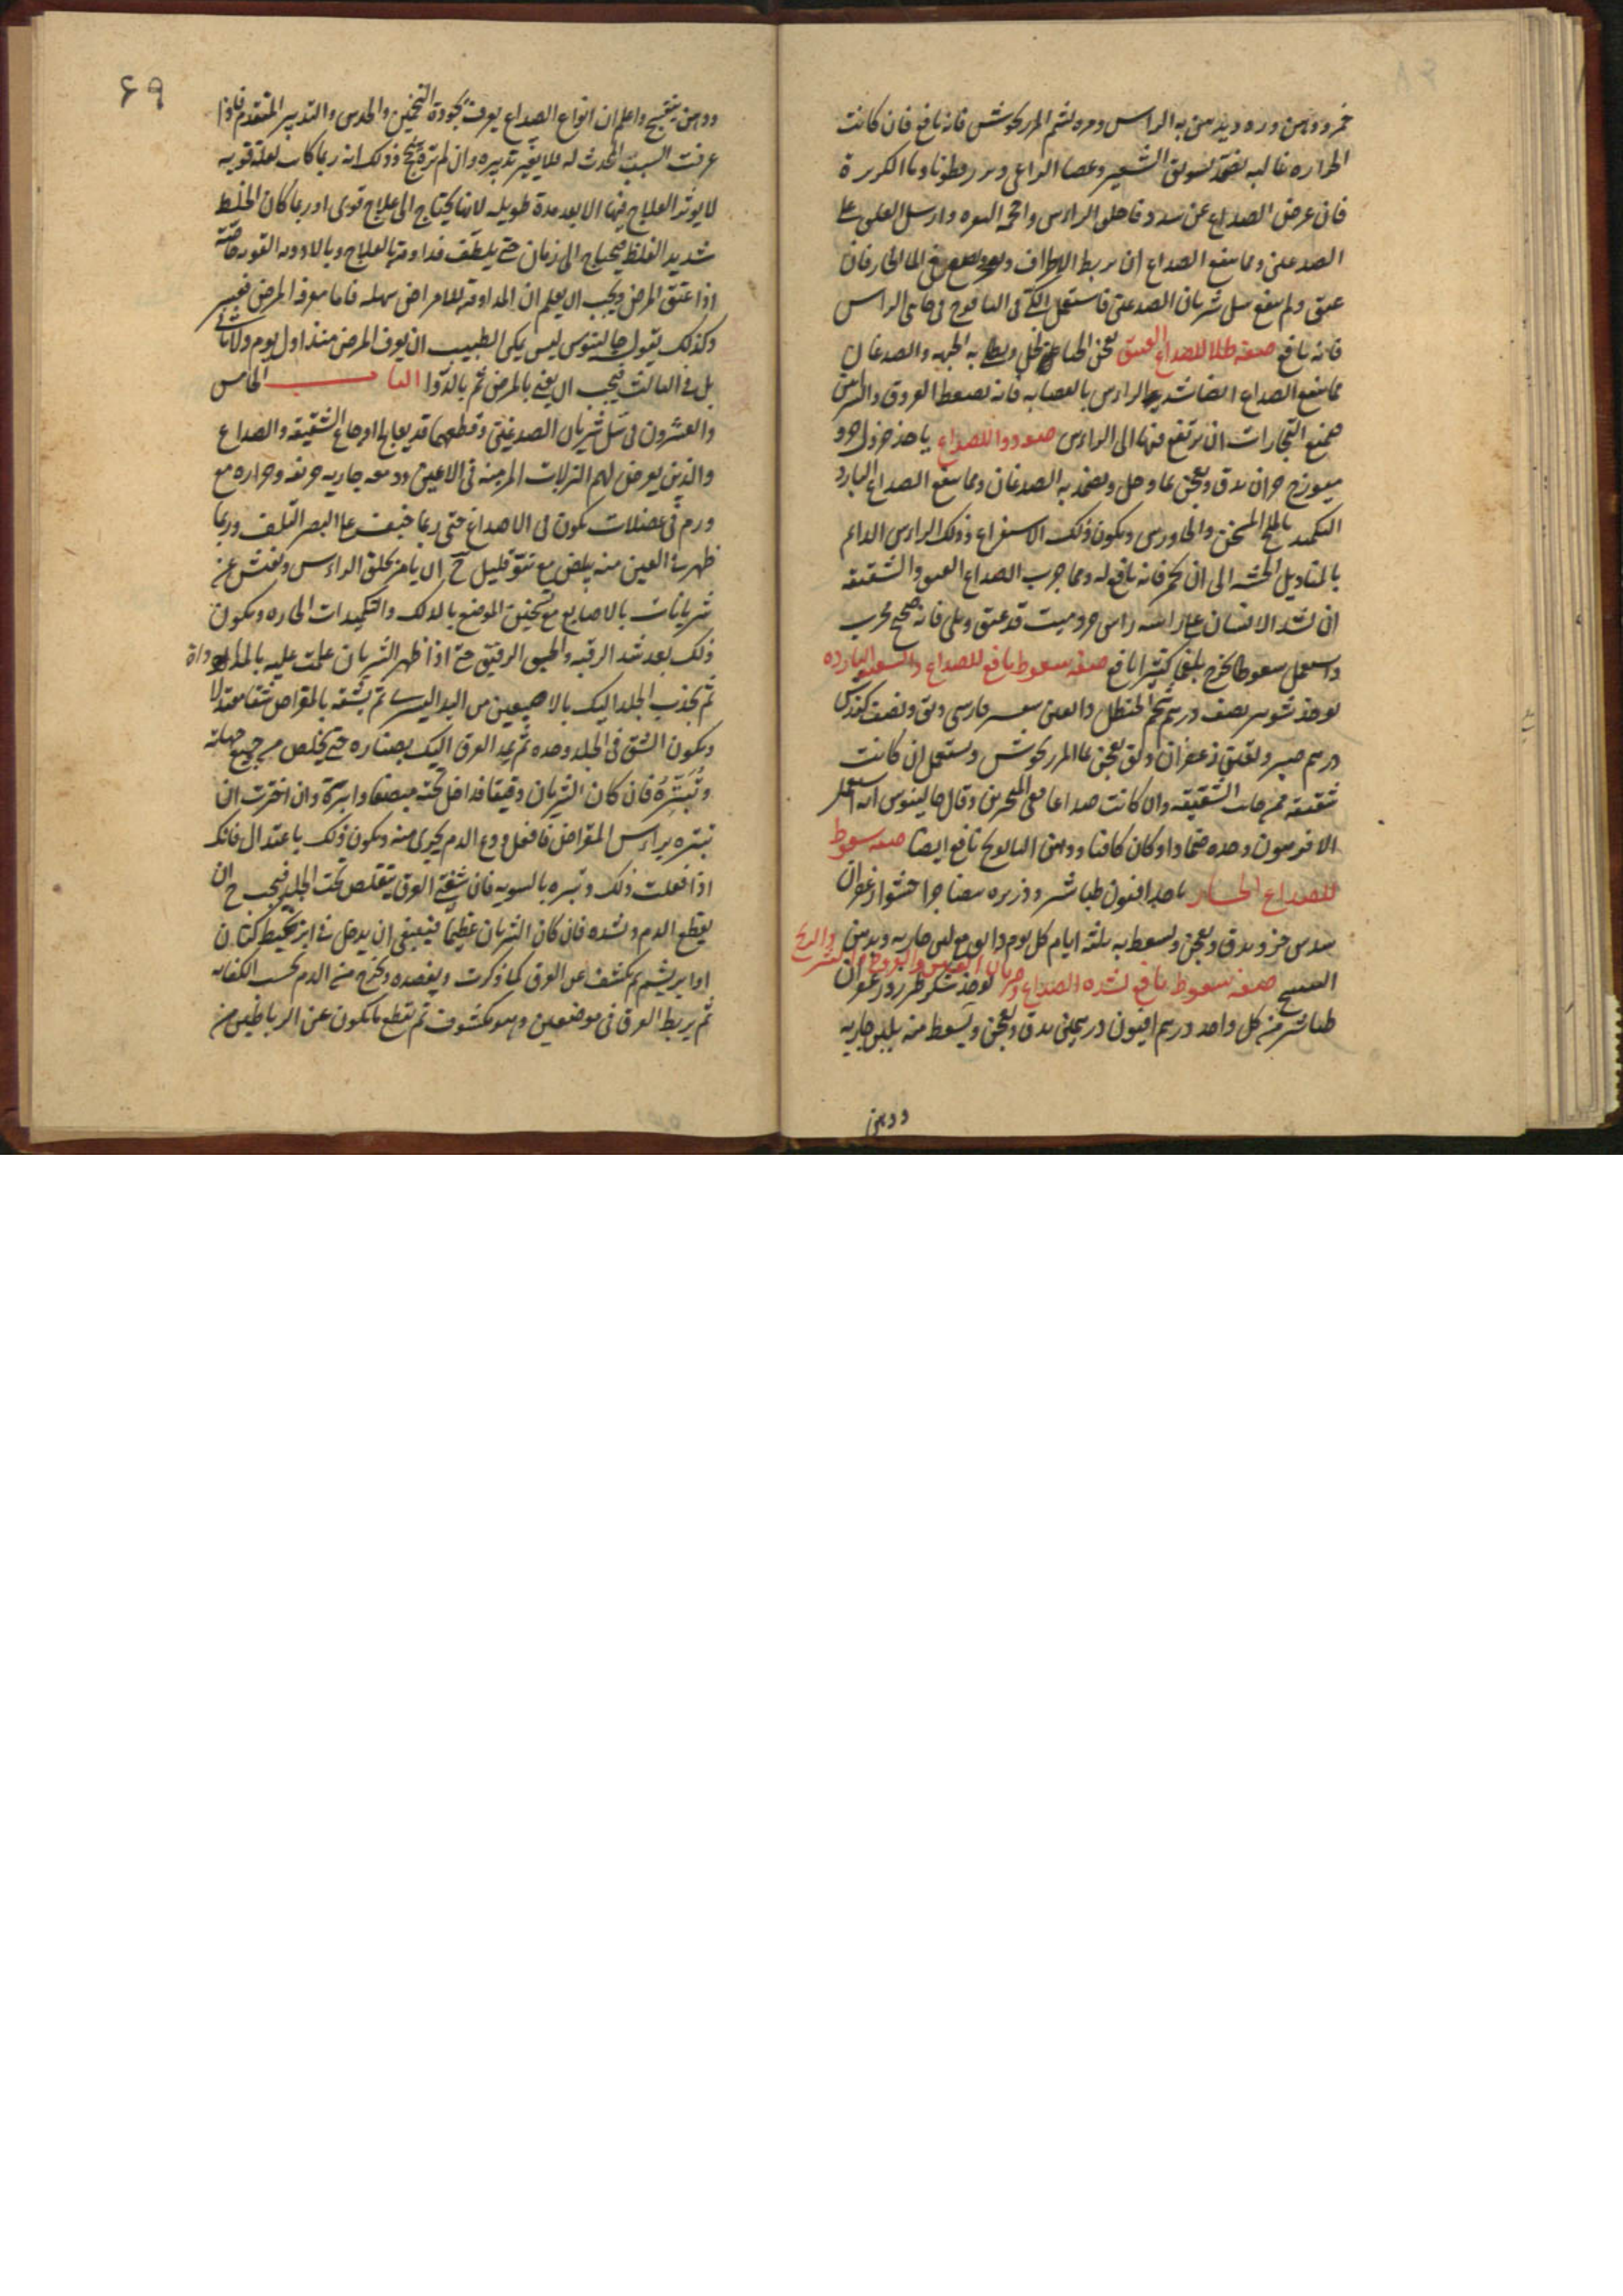 خمر ودهن ورد ويدهن به الراس ومره بشم المرزنجوش فانه نافع فان كانت
الحراره غالبه فضمد بسويق الشعير وعصا الراعى وبزرقطونا وما الكزبرة
فان عرض الصداع عن سدد فاحلق الراس واحجم النقره وارسل العلق على
الصدغين ومما ينفع الصداع ان يربط الاطراف فى الما الحار فان
عتق ولم ينفع سل شريان الصدغين فاستعمل الكى فى اليافوخ فى جانبى الراس
فانه نافع صفه طلا للصداع العتيق يعجن الحنا بالخل ويطلا به الجبهه والصدغان
مما ينفع الصداع ايضا شد الراس بالعصابه فانه يضغط العروق والشراين
فيمنع البخارات ان يرتفع فيها الى الراس صفه دوا للصداع ياخذ خردل جزو
ميويزج جزان يدق ويعجن بما وخل ويضمد به الصدغان ومما ينفع الصداع البارد
التكميد بالملح المسخن والجاورس ويكون ذلك الاستفراغ وذلك الراس الدائم
بالمناديل الخشنه الى ان يحمر فانه نافع له ومما جرب للصداع العتيق والشقيقه
ان يشد الانسان على راسه راس ميت قد عتق وبلى فانه صحيح مجرب
واستعمل سعوطا يخرج بلغما كثيرا نافع صفه سعوط نافع للصداع والشقيقه البارده
يوخذ شونيز نصف درهم شحم الحنظل دانقين دانق ونصف كندس
درهم صبر ودانق زعفران دانق يعجن بما المرزنجوش ويستعمل ان كانت
شقيقه فمن جانب الشقيقه وان كانت صداعا ففى المنخرين وقال جالينوس انه استعمل
الافربيون وحده ضمادا وكان كافيا ودهن البابونج نافع ايضا صفه سعوط
للصداع الحار ياخذ افيون طباشير وزر ورد بيضا جزا جزا زعفران
سدس جزو يدق ويعجن ويسعط به ثلثه ايام كل يوم دانق مع لبن جاريه ودهن
البنفسج صفه سعوط نافع لشده الصداع وضربان العين والبروده والريح يوخذ سكر طبرزد زعفران
طباشير من كل واحد درهم افيون درهمين يدق ويعجن ويسعط منه بلبن جاريه
ودهن
٦٩
ودهن بنفسج واعلم ان انواع الصداع يعرف بجودة التخمين والحدس والتدبير المتقدم فاذا
عرفت السبب المحدث له فلا يغير تدبيره وان لم تره ينجح وذلك انه ربما كانت لعلة قويه
لا يوثر العلاج فيها الا بعد مدة طويله لانها يحتاج الى علاج قوى او ربما كان الخلط
شديد الغلظ فيحتاج الى زمان حتى يلطف فداومه بالعلاج وبالادويه القويه خاصه
اذا عتق المرض ويجب ان يعلم ان المداومه للامراض سهله فاما معرفة المرض فعسير
وكذلك يقول جالينوس ليس يمكن الطبيب ان يعرف المرض منذ اول يوم ولا ثانى
بل فى الثالث فيجب ان يعنى بالمرض ثم بالدوا الباب الخامس
والعشرون فى سل شريان الصدغين وقطعهما قد يعالج اوجاع الشقيقه والصداع
والذين يعرض لهم النزلات المزمنه فى الاعين ودمعه جاريه حريفه وحراره مع
ورم فى عضلات يكون فى الاصداغ حتى ربما خيف على البصر التلف وربما
ظهر فى العين منه بياض مع نتو قليل ح ان يامر بحلق الراس وتفتش عن
شريانات بالاصابع مع تسخين الموضع بالدلك والتكميدات الحاره ويكون
ذلك بعد شد الرقبه والخنق الرفيق حتى اذا ظهر الشريان علمت عليه بالمداد
ثم تجذب الجلد اليك بالاصبعين من اليد اليسرى ثم يشقه بالمقراض شقا معتدلا
ويكون الشق فى الجلد وحده ثم يمد العرق اليك بصناره حتى يخلص من جميع جهاته
وتبتره فان كان الشريان دقيقا فداخل تحته مبضعا وابتره وان اخترت ان
تبتره براس المقراض فافعل ودع الدم يجرى منه ويكون ذلك باعتدال فانك
اذا فعلت ذلك وتبتره بالسويه فان شفتى العرق يتقلص تحت الجلد فيجب ح ان
يقطع الدم ويشده فان كان الشريان عظيما فينبغى ان يدخل فى ابره بخيط كتان
او ابريشم ثم يكشف عن العرق كما ذكرت ويفصده ويخرج من الدم بحسب الكفايه
ثم يربط العرق فى موضعين وهو مكشوف ثم تقطع ما يكون عن الرباطين من